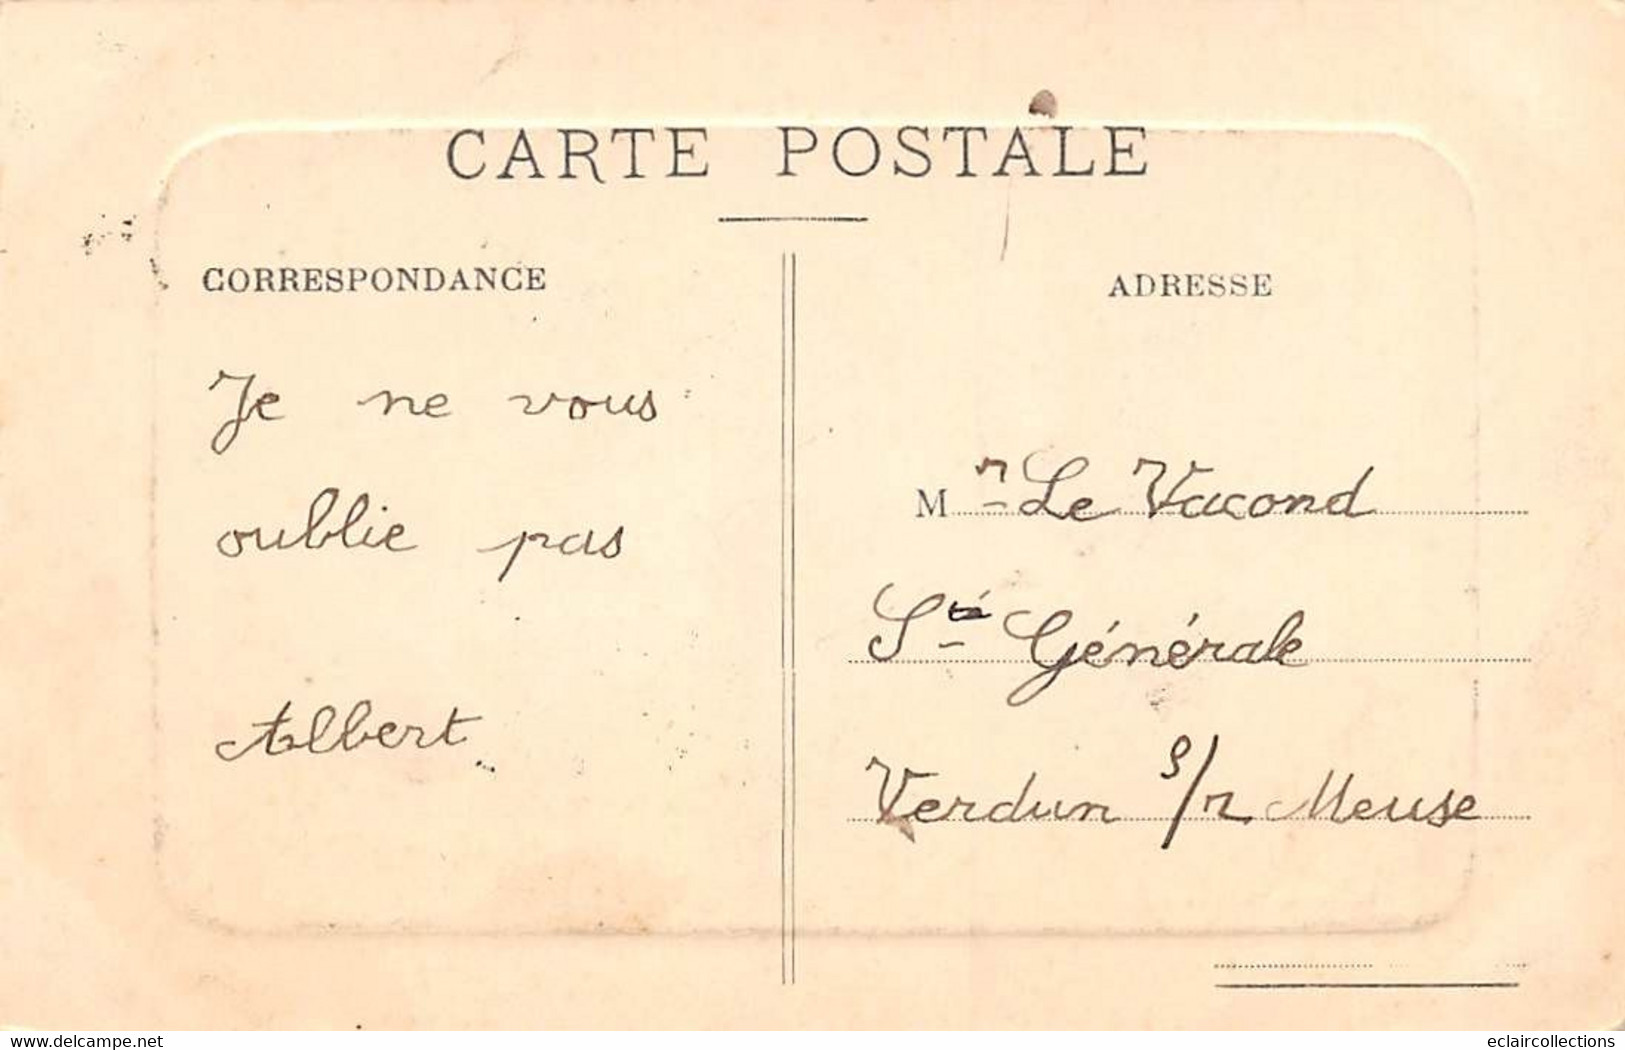 CARTE POSTALE
CORRESPONDANCE
Je ne vous
oublie pas
Albert
ADRESSE
Mr Le Vacond
Sté Générale
Verdun s/r Meuse
www.delcampe.net
eclaircollections